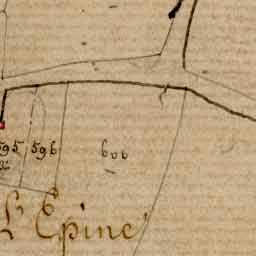 595 596 600
L'Epine